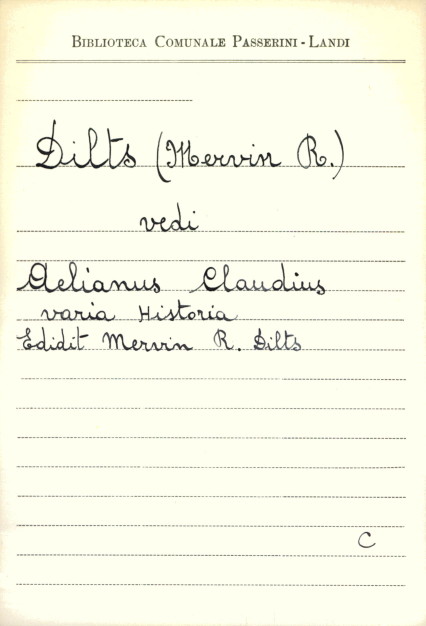 BIBLIOTECA COMUNALE PASSERINI - LANDI
Dilts (Mervin R.)
vedi
Aelianus Claudius
varia Historia
Edidit Mervin R. Dilts
C